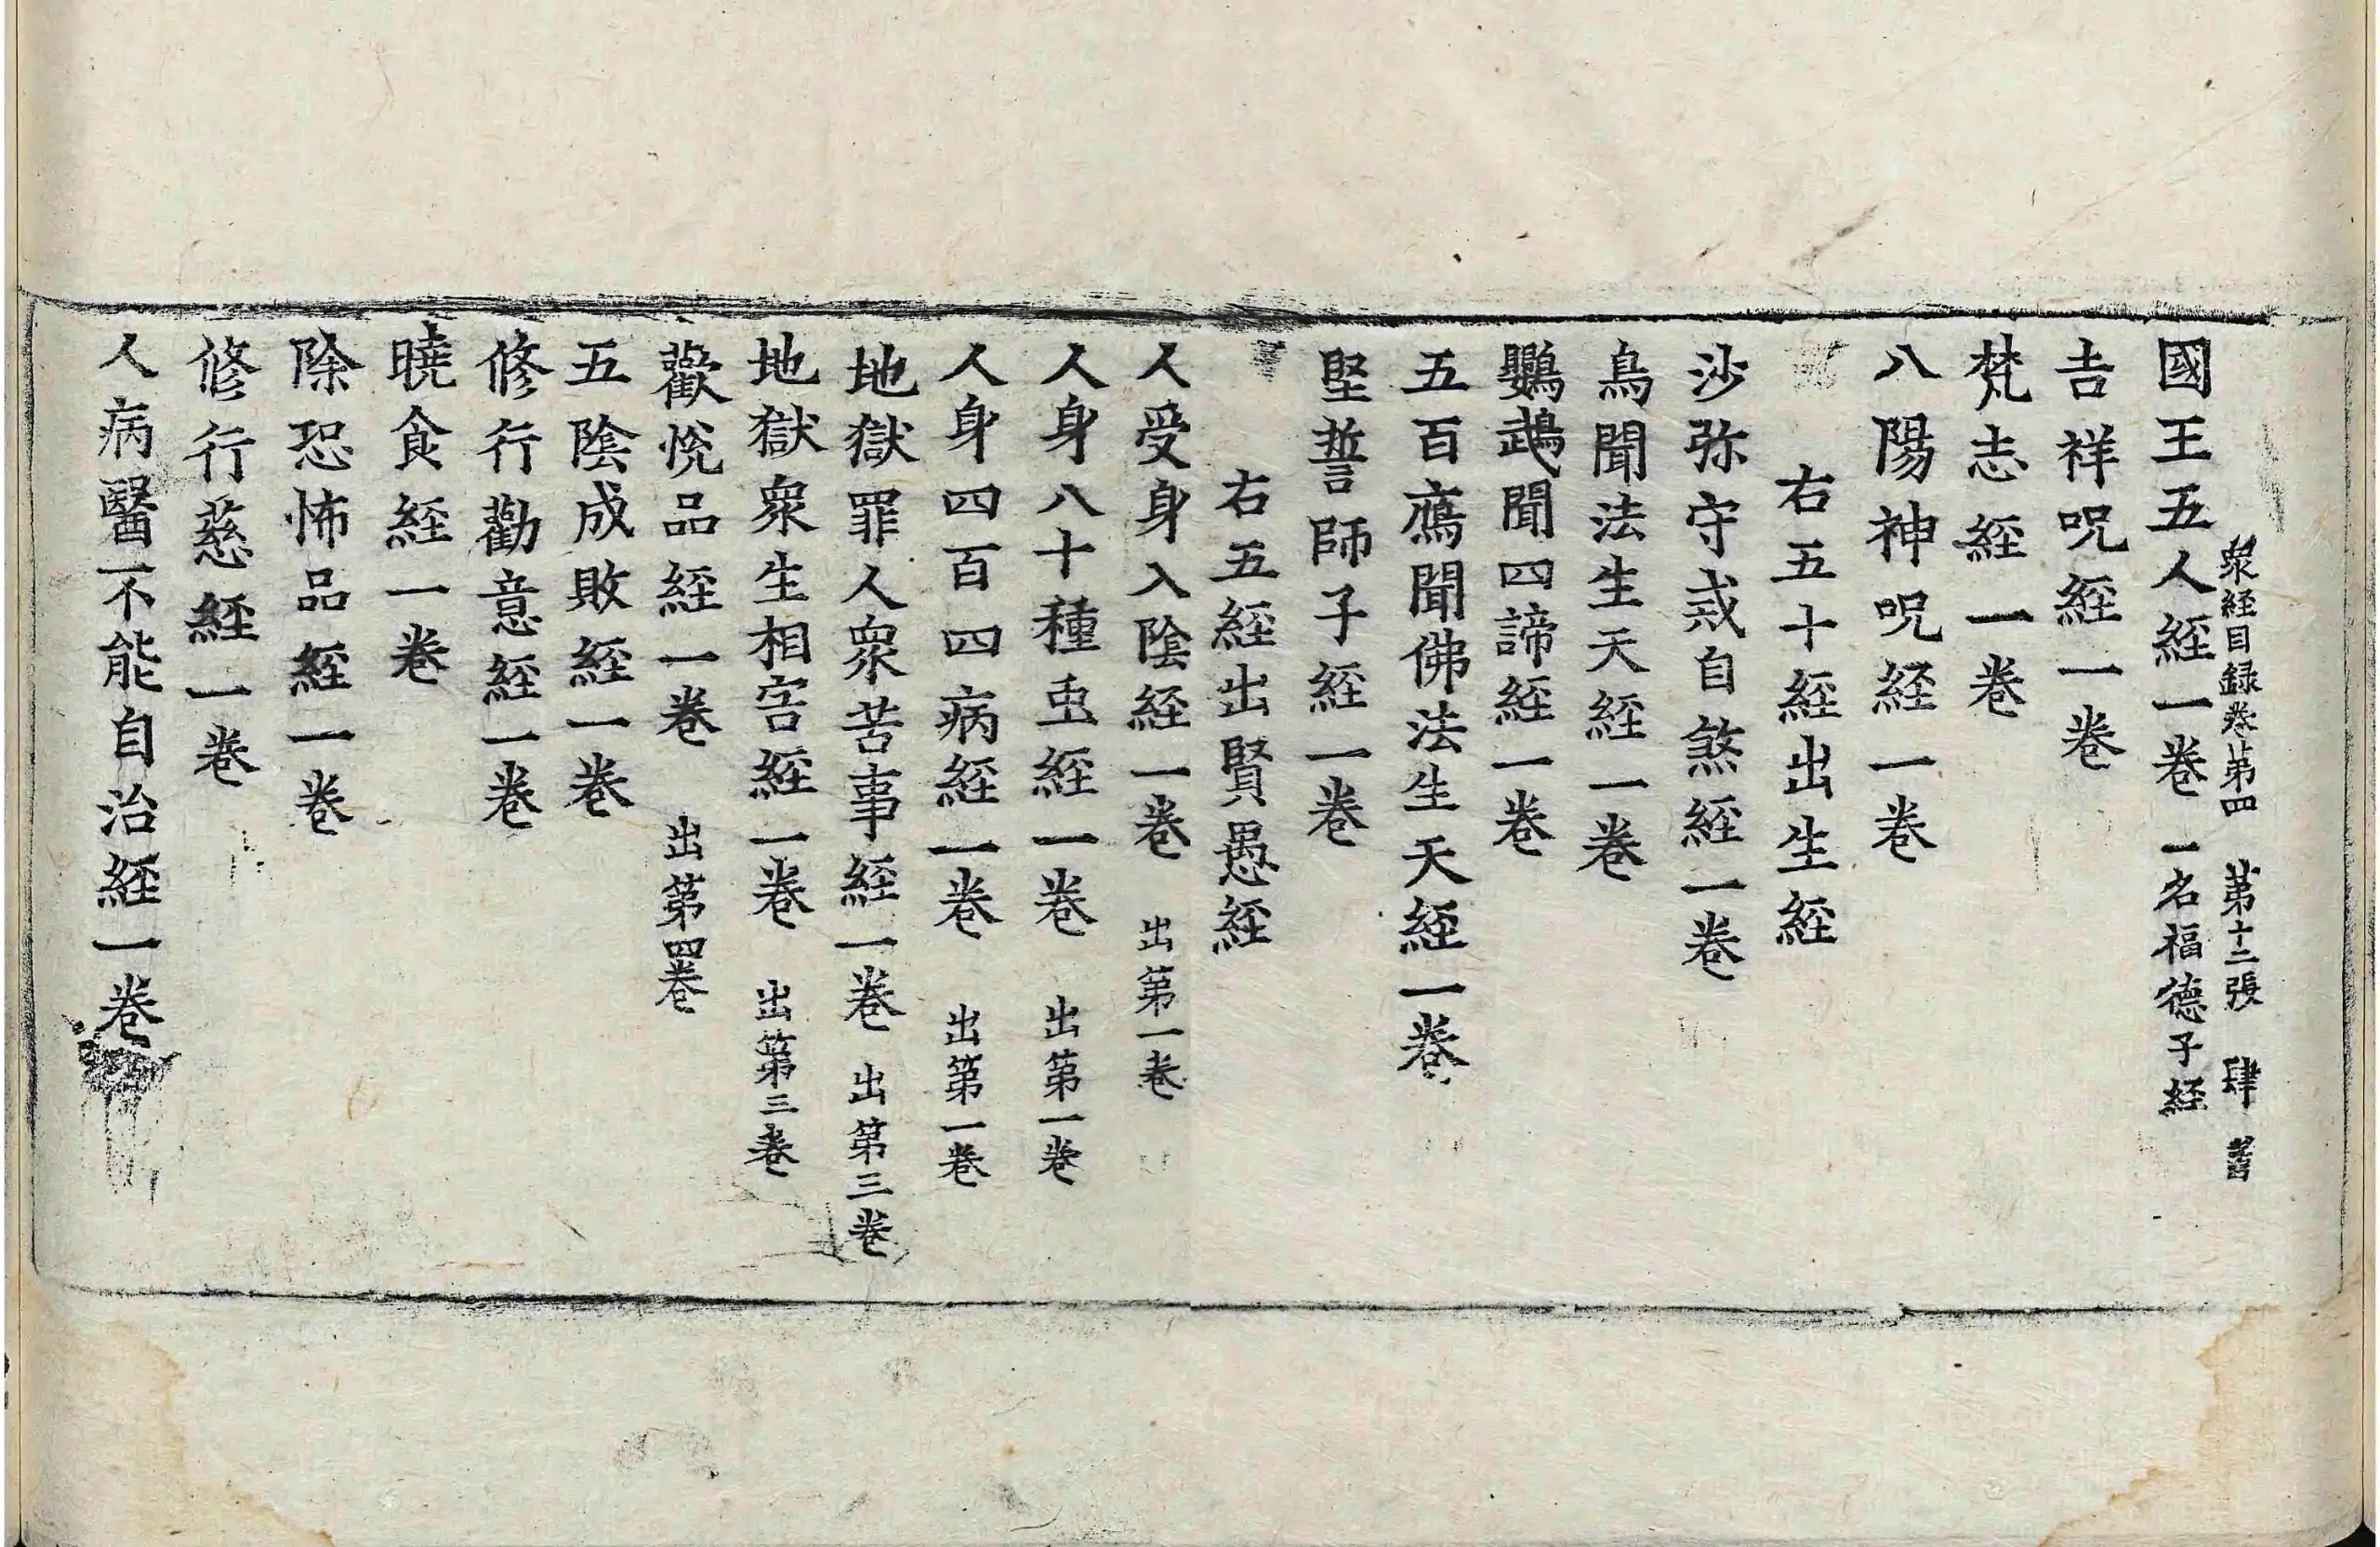 衆経目録卷第四 第十二張 肆
國王五人經一卷 一名福德子経
吉祥呪經一卷
梵志經一卷
八陽神呪経一卷
右五十經出生經
沙弥守戒自煞經一卷
鳥聞法生天經一卷
鸚鵡聞四諦經一卷
五百鴈聞佛法生天經一卷
堅誓師子經一卷
右五經出賢愚經
人受身入陰経一卷 出第一卷
人身八十種虫經一卷 出第一卷
人身四百四病經一卷 出第一卷
地獄罪人衆苦事經一卷 出第三卷
地獄衆生相害經一卷 出第三卷
歡悅品經一卷 出第四卷
五陰成敗經一卷
修行勸意經一卷
曉食經一卷
除恐怖品經一卷
修行慈經一卷
人病醫不能自治經一卷